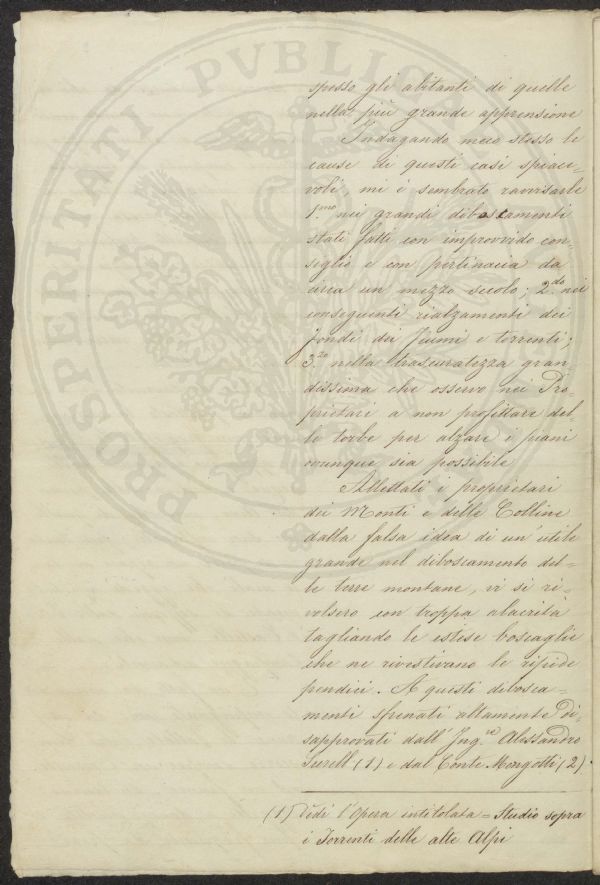 PROSPERITATI PUBLICAE
spesso gli abitanti di quelle
nella più grande apprensione
Indagando meco stesso le
cause di questi casi spiace-
voli, mi è sembrato ravvisarle
1.mo nei grandi diboscamenti
stati fatti con improvvido con-
siglio e con pertinacia da
circa un mezzo secolo; 2.do nei
conseguenti rialzamenti dei
fondi dei fiumi e torrenti;
3.zo nella trascuratezza gran
dissima che osservo nei Pro-
prietari a non profittare del
le torbe per alzare i piani
ovunque sia possibile
Allettati i proprietari
dei Monti e delle Colline
dalla falsa idea di un utile
grande nel diboscamento del=
le terre montane, vi si ri-
volsero con troppa alacrità
tagliando le estese boscaglie
che ne rivestivano le ripide
pendici. A questi dibosca=
menti sfrenati altamente di-
sapprovati dall'Ing.re Alessandro
Surell (1) e dal Conte Mengotti (2)
(1) Vedi l'Opera intitolata = Studio sopra
i Torrenti delle alte Alpi